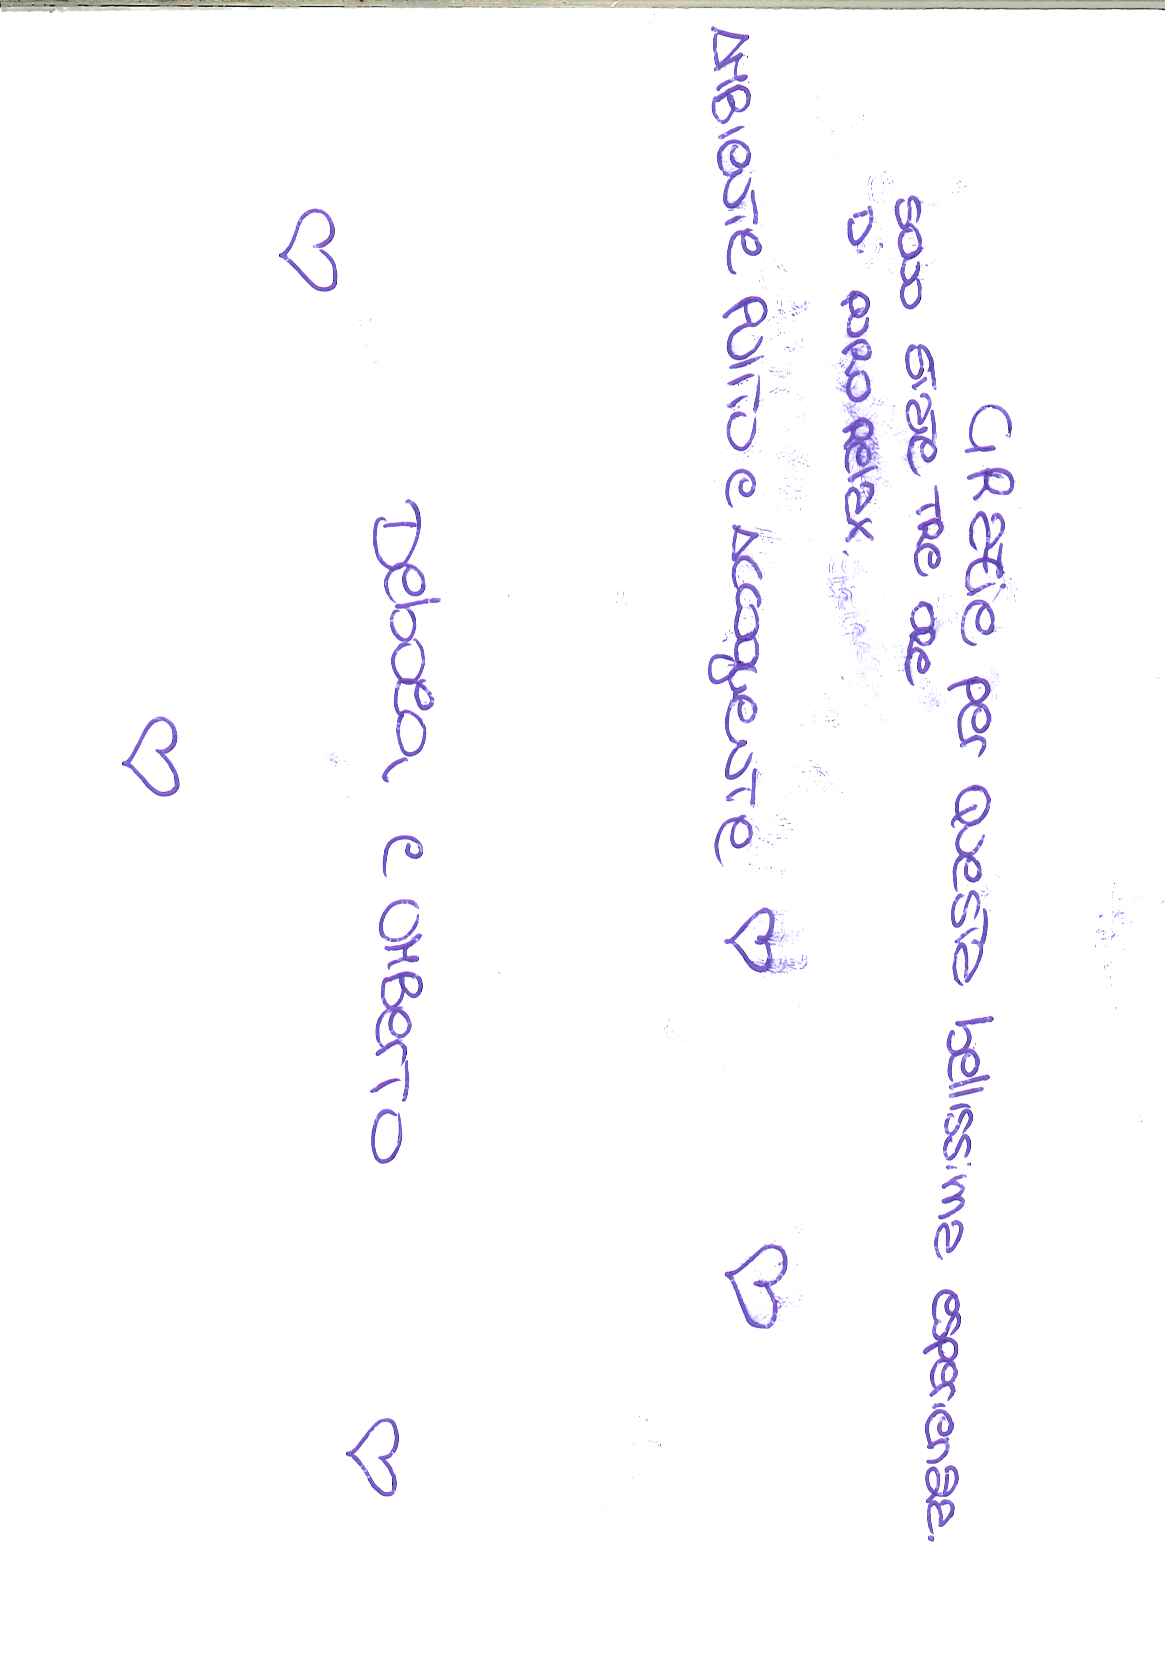 GRazie per questa bellissima esperienza.
sono state tre ore
Di puro relax.
AMBIENTE PULITO e Accogliente
Debora, e UMBERTO